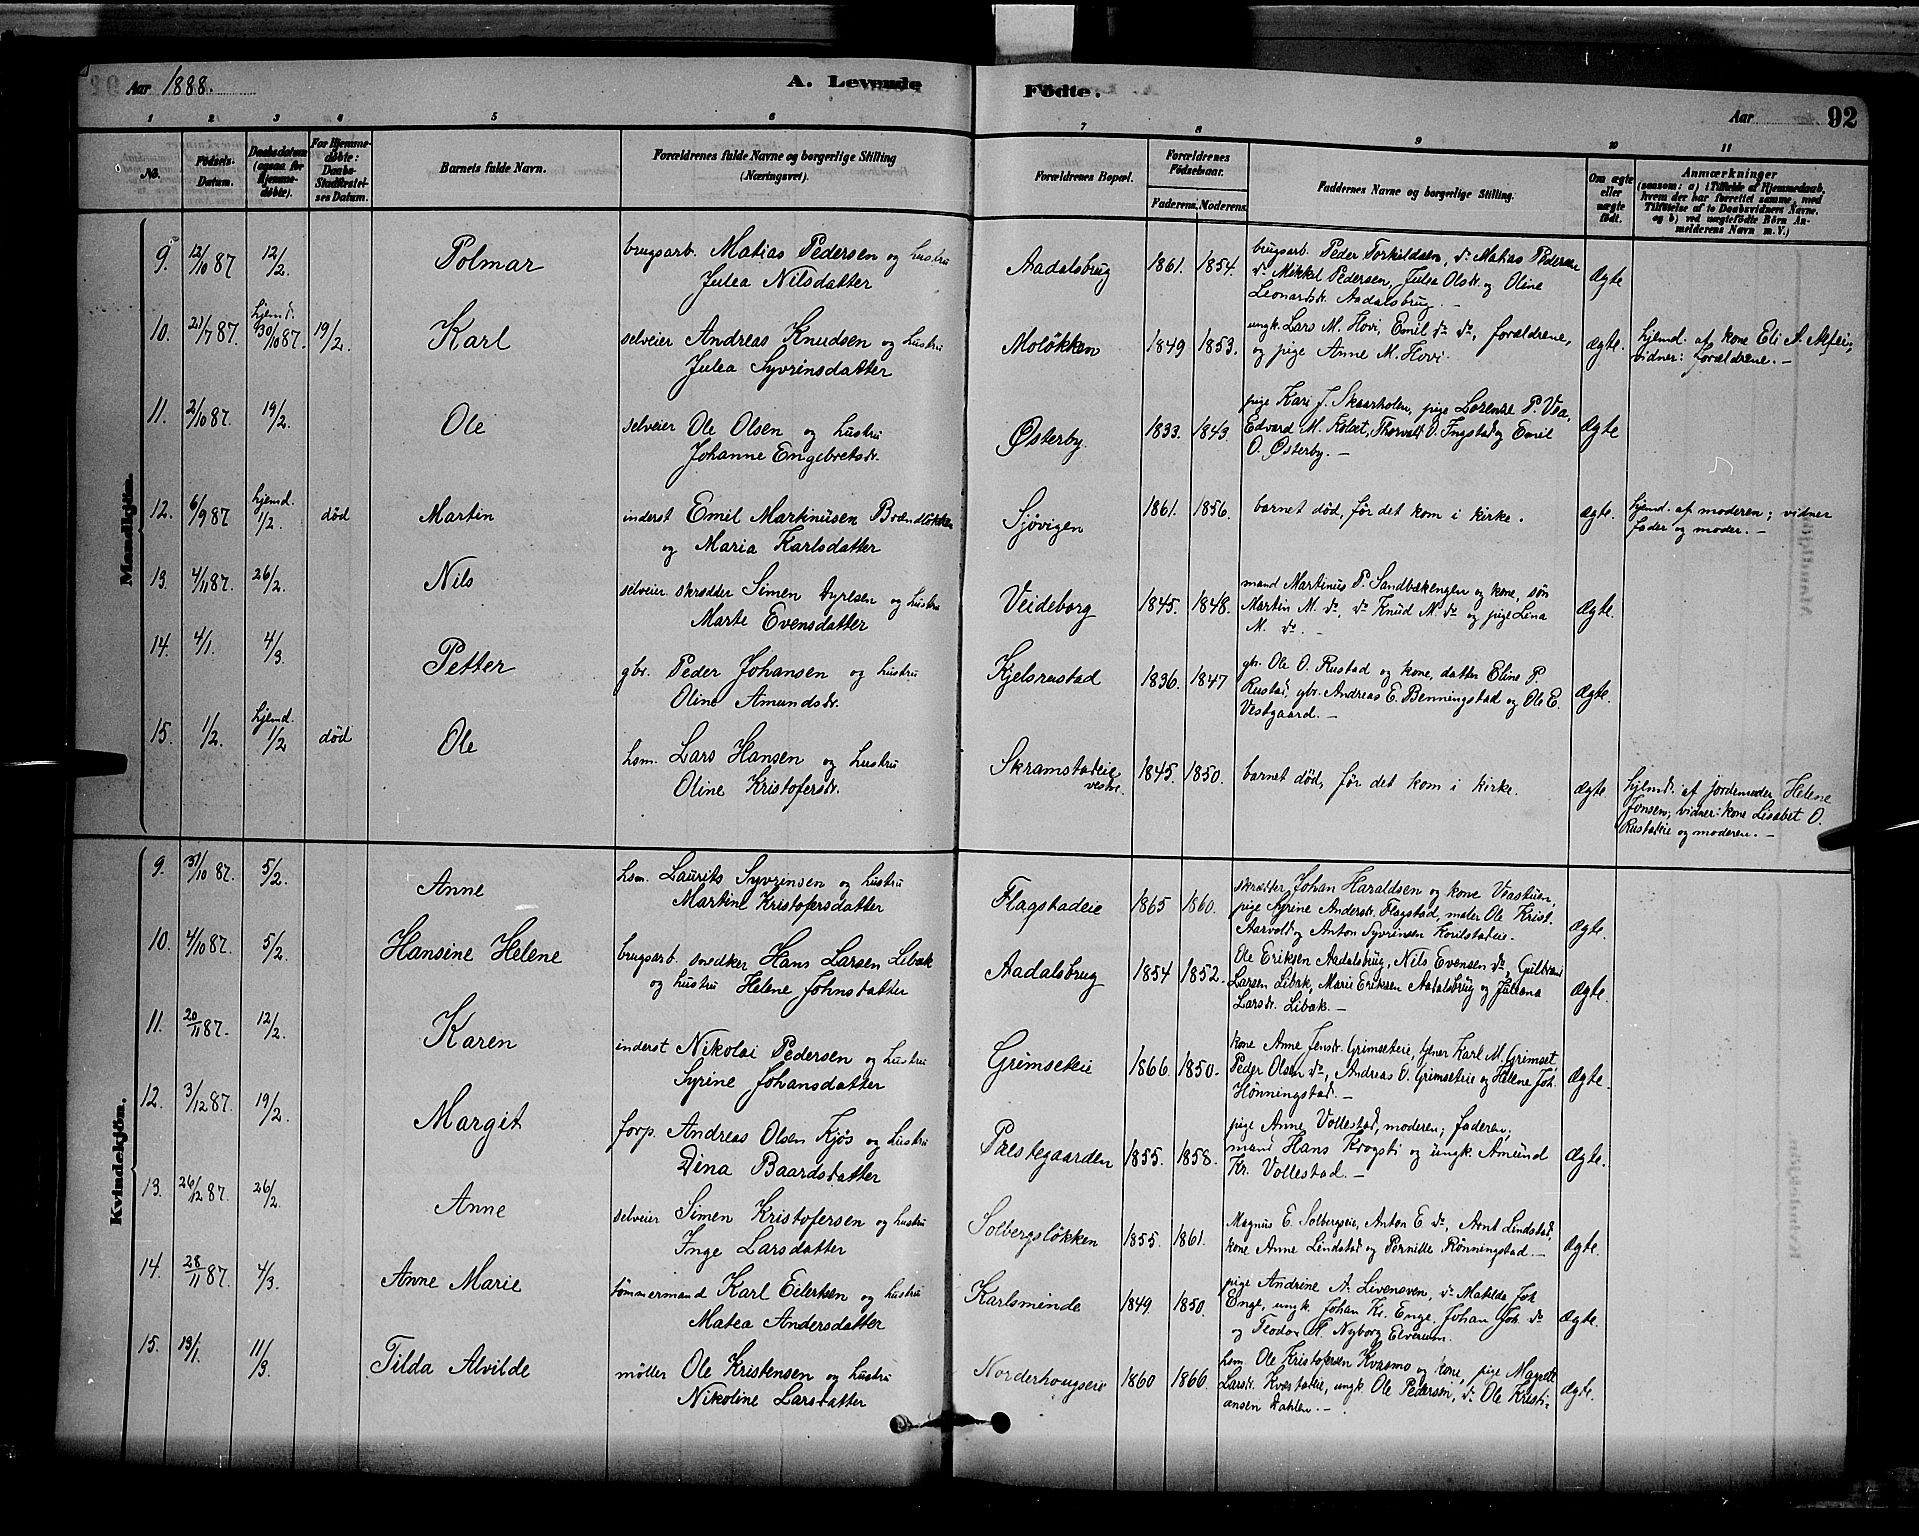 Aar 1888. A. Levende Fødte. Aar 92
1 2 3 4 5 6 7 8 9 10 11
No. Fødsels-Datum. Daabsdatum (ogsaa for Hjemmedøbte). For Hjemmedøbte: Daabs-Stadfæstelses Datum. Barnets fulde Navn. Forældrenes fulde Navne og borgerlige Stilling (Næringsvei). Forældrenes Bopæl. Forældrenes Fødselsaar. Faderens. Moderens. Faddernes Navne og borgerlige Stilling. Om ægte eller uægte født. Anmærkninger
(saasom: a) i Tilfælde af Hjemmedaab, hvem der har forrettet samme, med Tilføielse af to Daabsvidners Navne, og b) ved uægtefødte Børn Anmelderens Navn m. V.)
Mandkjøn.
9. 12/10 87 12/2. Polmar brugsarb. Matias Pedersen og hustru
Julea Nilsdatter
Aadalsbrug 1861. 1854. brugsarb. Peder Torkildsen, do Matias Pedersen
do Mikkel Pedersen, Julea Olsdr. og Oline
Leonardsdr. Aadalsbrug. —
Ægte
10. 21/7 87. hjemd. 30/10 87. 19/2. Karl selveier Andreas Knudsen og hustru
Julea Syvrinsdatter
Moløkken 1849 1853. ungk. Lars M. Hovi, Emil do do, forældrene,
og pige Anne M. Hovi.
Ægte. hjemd. af kone Eli A.
vidner: forældrene. —
11. 2/10 87. 19/2. Ole selveier Ole Olsen og hustru
Johanne Engebretsdr.
Østerby 1833. 1843. pige Kari J. Skaarholen, pige Lorense P. Vea,
Edvard M. Kolset, Thorvald O. Ingstad og Emil
O. Østerby. —
Ægte
12. 6/9 87 hjemd. 1/2. død Martin inderst Emil Martinüsen Brændløkken
og Maria Karlsdatter
Sjøvigen 1861. 1856. barnet død, før det kom i kirke. Ægte. hjemd. af moderen; vidner
fader og moder. —
13. 4/11 87. 26/2. Nils selveier skrædder Simen Syrlsen og hustru
Marte Evensdatter
Veideborg 1845. 1848. mand Martinus P. Sandbækengen og kone, søn
Martin M. do, do Knud M. do og pige Lina
M. do. —
Ægte.
14. 4/1. 4/3. Petter gbr. Peder Johansen og hustru
Oline Amundsdr.
Kjelsrustad 1836. 1847 gbr. Ole O. Rustad og kone, datter Eline P.
Rustad, gbr. Andreas E. Benningstad og Ole E.
Vestgaard. —
Ægte.
15. 1/2. hjemd. 1/2 død Ole hsm. Lars Hansen og hustru
Oline Kristofersdr.
Skramstadeie
vestre. 1845. 1850. barnet død, før det kom i kirke. Ægte hjemd. af jordemoder Helene
Jensen; vidner: kone Lisabet O.
Rustadeie og moderen. —
Kvindekjøn.
9. 31/10 87. 5/2. Anne hsm. Laurits Syvrinsen og hustru
Martine Kristofersdatter
Flagstadeie 1865 1860. skrædder Johan Haraldsen og kone Veastuen,
pige Syrine Andersdr. Flagstad, maler Ole Krist.
Aarvold og Anton Syvrinsen Korilstadeie.
Ægte.
10. 4/10 87. 5/2. Hansine Helene brugsarb. snedker Hans Larsen Libak
og hustru Helene Johnsdatter
Aadalsbrug 1854 1852. Ole Eriksen Aadalsbrug, Nils Evensen do, Gulbrand
Larsen Libak, Marie Eriksen Aadalsbrug og Juliana
Larsdr. Libak. —
Ægte.
11. 20/11 87. 12/2. Karen inderst Nikolai Pedersen og hustru
Syrine Johansdatter
Grimseteie 1866 1850. kone Anne Jensdr. Grimseteie, tjener Karl M. Grimset,
Peder Olsen do, Andreas O. Grimseteie og Helene Joh.
Hønningstad. —
Ægte.
12. 3/12 87. 19/2. Margit forp. Andreas Olsen Kjøs og hustru
Dina Baardsdatter
Præstegaarden 1855. 1858. pige Anne Vollestad, moderen; faderen;
mand Hans Krogsti og ungk. Amund
Kr. Vollestad. —
Ægte.
13. 26/12 87. 26/2. Anne selveier Simen Kristofersen og hustru
Inge Larsdatter
Solbergsløkken 1855. 1861. Magnus E. Solbergseie, Anton E. do, Arnt Lindstad,
kone Anne Lindstad og Pernille Rønningstad. —
Ægte.
14. 28/11 87. 4/3. Anne Marie tømmermand Karl Eilertsen og hustru
Matea Andersdatter
Karlsminde 1849 1850. pige Andrine A. Livensven, do Matilda Joh
Enge, ungk. Johan Kr. Enge, Johan Joh. do
og Teodor M. Nyborg Elverum.
Ægte.
15. 13/1. 11/3. Tilda Alvilde møller Ole Kristensen og hustru
Nikoline Larsdatter
Norderhougseie 1860 1866. hsm. Ole Kristofersen Kvasmo og kone, pige Magrete
Larsdr. Kvæstadeie, ungk. Ole Pedersen, do Ole Kristi-
ansen Dahlen. —
Ægte.